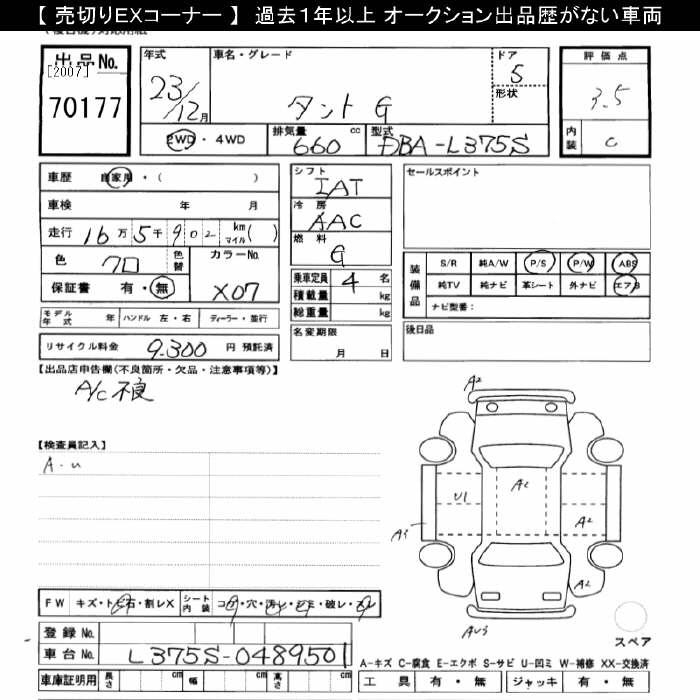 【 売切りEXコーナー 】 過去1年以上 オークション出品歴がない車両
出品No.
[2007]
70177
年式
23/12月
車名・グレード
タント G
ドア
5
形状
2WD・4WD
排気量 660 cc
型式 DBA-L375S
評価点
3.5
内装 C
車歴 自家用・( )
車検 年 月
走行 16万5千902 km マイル( )
色 クロ 色替
カラーNo.
X07
保証書 有・無
シフト
IAT
冷房
AAC
燃料
G
乗車定員 4 名
積載量 kg
総重量 kg
セールスポイント
装備品
S/R 純A/W P/S P/W ABS
純TV 純ナビ 革シート 外ナビ エアB
ナビ型番:
モデル年式 年 ハンドル 左・右 ディーラー・並行
リサイクル料金 9,300 円 預託済
名変期限
月 日
後日品
【出品店申告欄(不良箇所・欠品・注意事項等)】
A/C不良
【検査員記入】
A-U
A2
U1
A2
A1
A2
A2
AU3
スペア
FW キズ・トビ石・割レX
シート内装 コゲ・穴・汚レ・シミ・破レ・スレ
登録No.
車台No. L375S-0489501
車庫証明用 長さ cm 幅 cm 高さ cm
A-キズ C-腐食 E-エクボ S-サビ U-凹ミ W-補修 XX-交換済
工具 有・無 ジャッキ 有・無